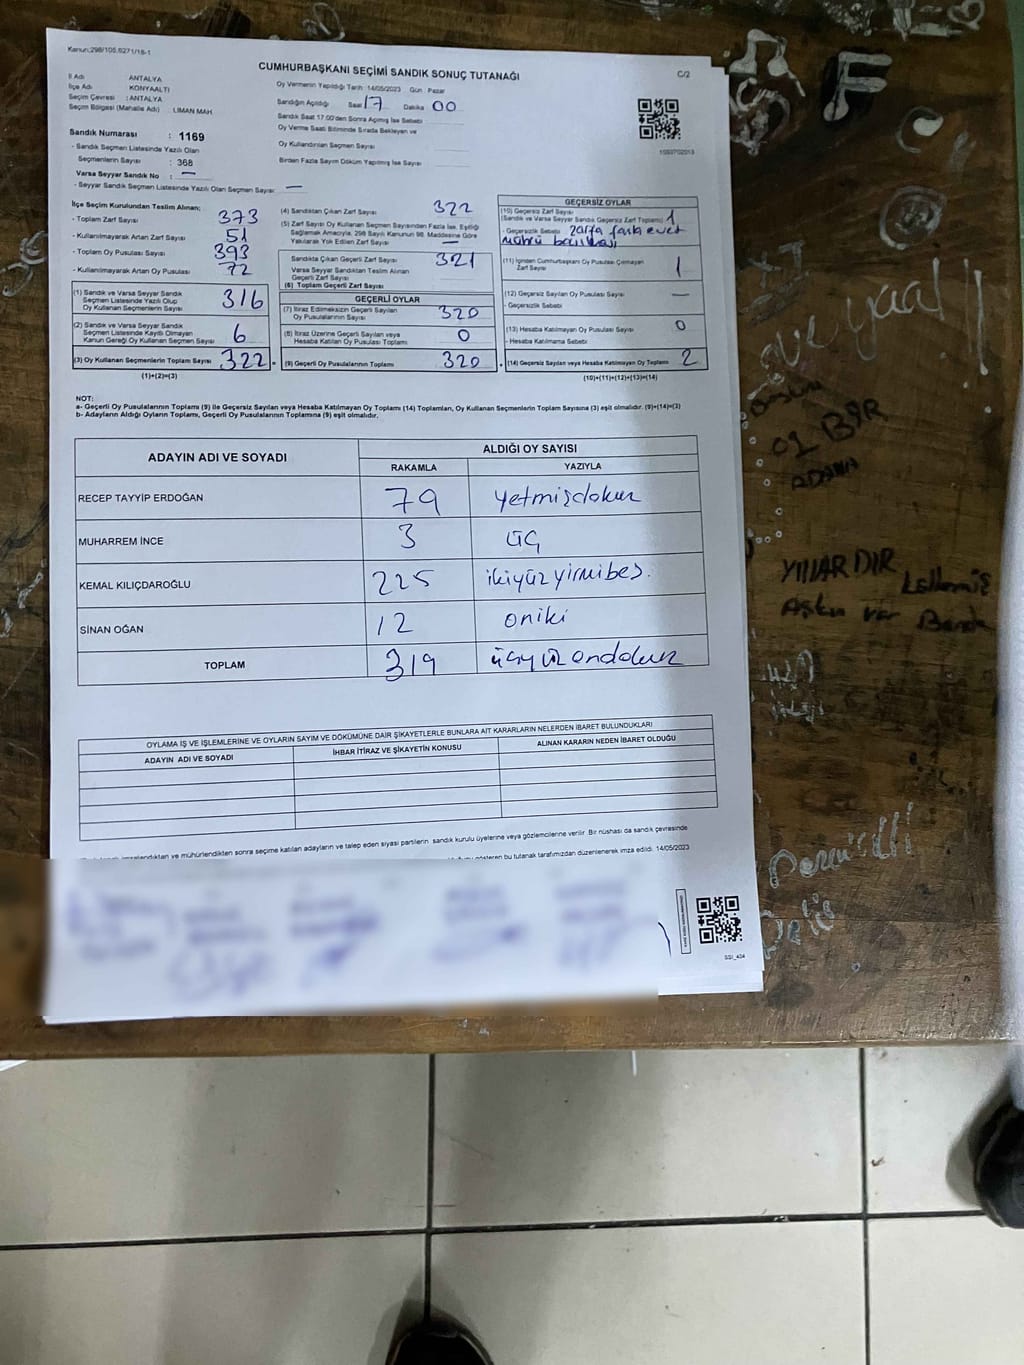 Kanun:298/105,6271/18-1
CUMHURBAŞKANI SEÇİMİ SANDIK SONUÇ TUTANAĞI
C/2
İl Adı ANTALYA
İlçe Adı KONYAALTI
Seçim Çevresi : ANTALYA
Seçim Bölgesi (Mahalle Adı) : LİMAN MAH
Oy Vermenin Yapıldığı Tarih 14/05/2023 Gün : Pazar
Sandığın Açıldığı Saat 17 Dakika 00
Sandık Saat 17.00'den Sonra Açılmış İse Sebebi
Oy Verme Saati Bitiminde Sırada Bekleyen ve
Oy Kullandırılan Seçmen Sayısı
Birden Fazla Sayım Döküm Yapılmış İse Sayısı
Sandık Numarası : 1169
- Sandık Seçmen Listesinde Yazılı Olan
Seçmenlerin Sayısı : 368
Varsa Seyyar Sandık No : —
- Seyyar Sandık Seçmen Listesinde Yazılı Olan Seçmen Sayısı : —
İlçe Seçim Kurulundan Teslim Alınan;
- Toplam Zarf Sayısı 373
- Kullanılmayarak Artan Zarf Sayısı 51
- Toplam Oy Pusulası Sayısı 393
- Kullanılmayarak Artan Oy Pusulası 72
(1) Sandık ve Varsa Seyyar Sandık
Seçmen Listesinde Yazılı Olup
Oy Kullanan Seçmenlerin Sayısı 316
(2) Sandık ve Varsa Seyyar Sandık
Seçmen Listesinde Kayıtlı Olmayan
Kanun Gereği Oy Kullanan Seçmen Sayısı 6
(3) Oy Kullanan Seçmenlerin Toplam Sayısı 322
(1)+(2)=(3)
(4) Sandıktan Çıkan Zarf Sayısı 322
(5) Zarf Sayısı Oy Kullanan Seçmen Sayısından Fazla İse, Eşitliği
Sağlamak Amacıyla, 298 Sayılı Kanunun 98. Maddesine Göre
Yakılarak Yok Edilen Zarf Sayısı —
Sandıkta Çıkan Geçerli Zarf Sayısı 321
Varsa Seyyar Sandıktan Teslim Alınan
Geçerli Zarf Sayısı
(6) Toplam Geçerli Zarf Sayısı
GEÇERLİ OYLAR
(7) İtiraz Edilmeksizin Geçerli Sayılan
Oy Pusulalarının Sayısı 320
(8) İtiraz Üzerine Geçerli Sayılan veya
Hesaba Katılan Oy Pusulası Toplamı 0
(9) Geçerli Oy Pusulalarının Toplamı 320
GEÇERSİZ OYLAR
(10) Geçersiz Zarf Sayısı
(Sandık ve Varsa Seyyar Sandık Geçersiz Zarf Toplamı) 1
- Geçersizlik Sebebi zarfa fazla evet
mührü basılması
(11) İçinden Cumhurbaşkanı Oy Pusulası Çıkmayan
Zarf Sayısı 1
(12) Geçersiz Sayılan Oy Pusulası Sayısı —
- Geçersizlik Sebebi
(13) Hesaba Katılmayan Oy Pusulası Sayısı 0
- Hesaba Katılmama Sebebi
(14) Geçersiz Sayılan veya Hesaba Katılmayan Oy Toplamı 2
(10)+(11)+(12)+(13)=(14)
NOT:
a- Geçerli Oy Pusulalarının Toplamı (9) ile Geçersiz Sayılan veya Hesaba Katılmayan Oy Toplamı (14) Toplamları, Oy Kullanan Seçmenlerin Toplam Sayısına (3) eşit olmalıdır. (9)+(14)=(3)
b- Adayların Aldığı Oyların Toplamı, Geçerli Oy Pusulalarının Toplamına (9) eşit olmalıdır.
ADAYIN ADI VE SOYADI
ALDIĞI OY SAYISI
RAKAMLA YAZIYLA
RECEP TAYYİP ERDOĞAN 79 yetmişdokuz
MUHARREM İNCE 3 üç
KEMAL KILIÇDAROĞLU 225 ikiyüzyirmibeş.
SİNAN OĞAN 12 oniki
TOPLAM 319 üçyüzondokuz
OYLAMA İŞ VE İŞLEMLERİNE VE OYLARIN SAYIM VE DÖKÜMÜNE DAİR ŞİKAYETLERLE BUNLARA AİT KARARLARIN NELERDEN İBARET BULUNDUKLARI
ADAYIN ADI VE SOYADI
İHBAR İTİRAZ VE ŞİKAYETİN KONUSU
ALINAN KARARIN NEDEN İBARET OLDUĞU
imzalandıktan ve mühürlendikten sonra seçime katılan adayların ve talep eden siyasi partilerin sandık kurulu üyelerine veya gözlemcilerine verilir. Bir nüshası da sandık çevresinde
gösteren bu tutanak tarafımızdan düzenlenerek imza edildi. 14/05/2023
SSI_424
01 BİR
ADANA
YILLARDIR
Aşkı var Bende